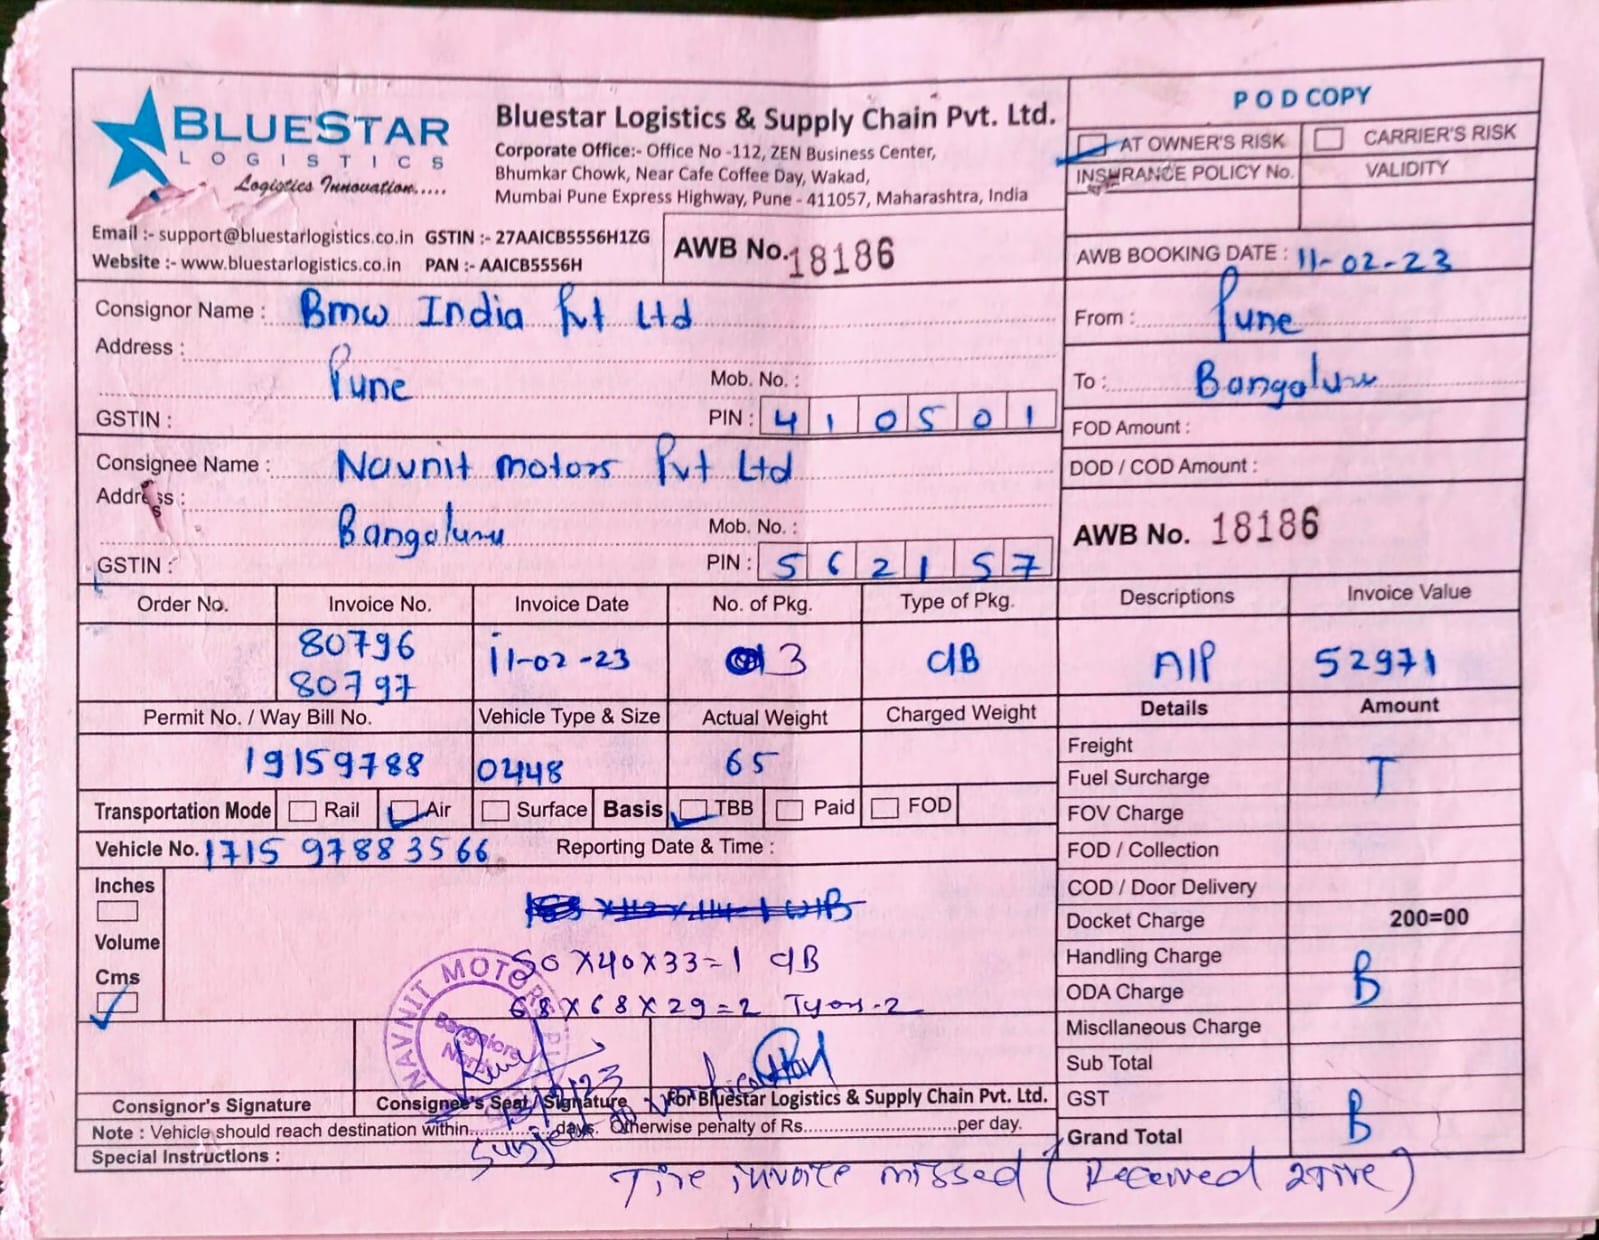 BLUESTAR
LOGISTICS
Logistics Innovation.....
Bluestar Logistics & Supply Chain Pvt. Ltd.
Corporate Office:- Office No -112, ZEN Business Center,
Bhumkar Chowk, Near Cafe Coffee Day, Wakad,
Mumbai Pune Express Highway, Pune - 411057, Maharashtra, India
Email :- support@bluestarlogistics.co.in GSTIN :- 27AAICB5556H1ZG
Website :- www.bluestarlogistics.co.in PAN :- AAICB5556H
AWB No. 18186
POD COPY
AT OWNER'S RISK CARRIER'S RISK
INSURANCE POLICY No. VALIDITY
AWB BOOKING DATE : 11-02-23
Consignor Name : Bmw India Pvt Ltd
Address :
Pune Mob. No. :
GSTIN : PIN : 410501
From : Pune
To : Bangaluru
FOD Amount :
DOD / COD Amount :
Consignee Name : Navnit motors Pvt Ltd
Address :
Bangaluru Mob. No. :
GSTIN : PIN : 562157
AWB No. 18186
Order No. Invoice No. Invoice Date No. of Pkg. Type of Pkg. Descriptions Invoice Value
80796 11-02-23 3 CB AIP 52971
80797
Permit No. / Way Bill No. Vehicle Type & Size Actual Weight Charged Weight Details Amount
19159788 0448 65
Transportation Mode Rail Air Surface Basis TBB Paid FOD
Vehicle No. 1715 97883566 Reporting Date & Time :
Inches
Volume
Cms
50X40X33=1 CB
68X68X29=2
NAVNIT MOTORS
Bangalore
North
Freight
Fuel Surcharge T
FOV Charge
FOD / Collection
COD / Door Delivery
Docket Charge 200=00
Handling Charge
ODA Charge B
Miscllaneous Charge
Sub Total
GST
Grand Total B
Consignor's Signature Consignee's Seal / Signature For Bluestar Logistics & Supply Chain Pvt. Ltd.
Note : Vehicle should reach destination within............days. Otherwise penalty of Rs............................per day.
Special Instructions :
Subject to
Tire invoice missed (Received 2 Tire)